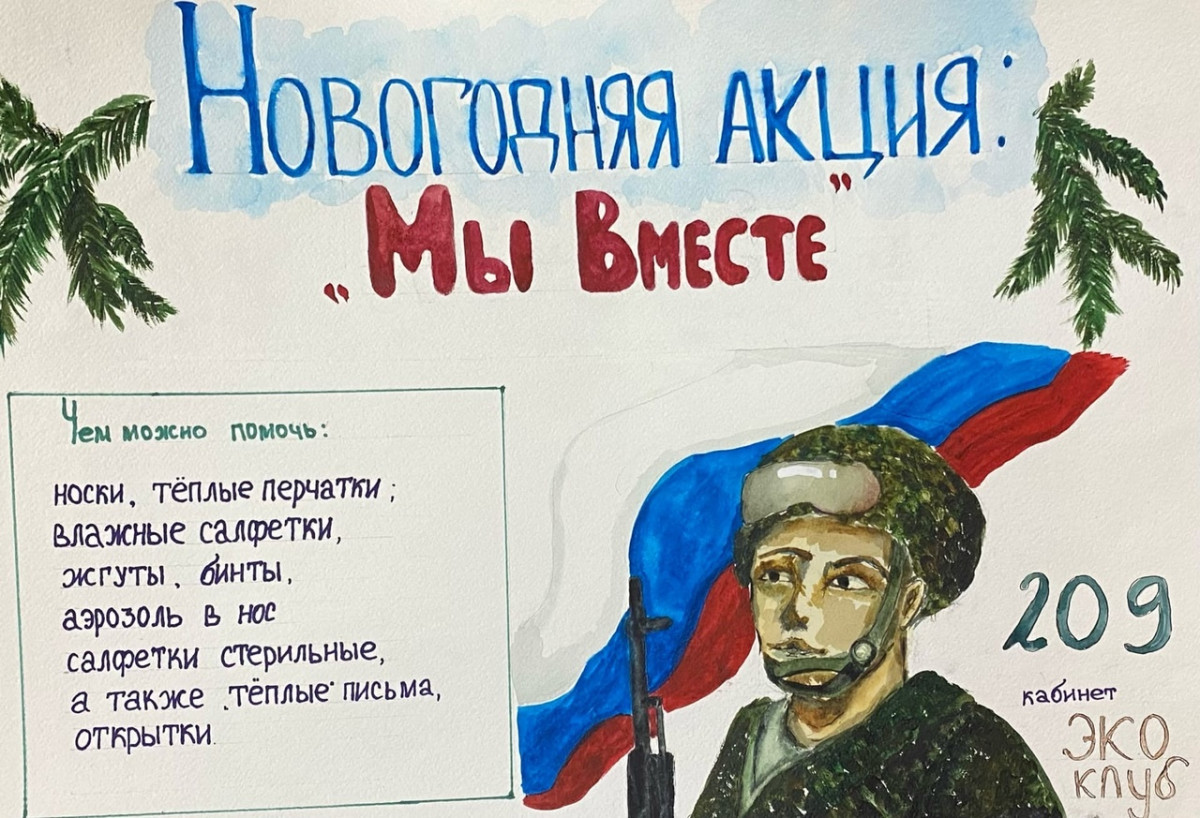 Новогодняя акция:
„Мы Вместе"
Чем можно помочь:
носки, тёплые перчатки;
влажные салфетки,
жгуты, бинты,
аэрозоль в нос
салфетки стерильные,
а также тёплые письма,
открытки.
209
кабинет
эко
клуб